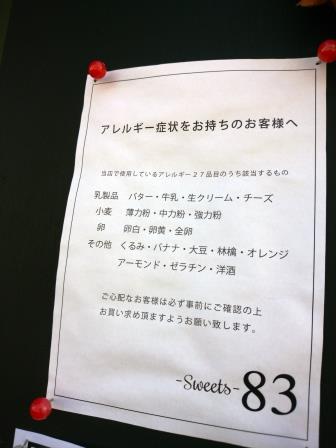 アレルギー症状をお持ちのお客様へ
当店で使用しているアレルギー27品目のうち該当するもの
乳製品 バター・牛乳・生クリーム・チーズ
小麦 薄力粉・中力粉・強力粉
卵 卵白・卵黄・全卵
その他 くるみ・バナナ・大豆・林檎・オレンジ
アーモンド・ゼラチン・洋酒
ご心配なお客様は必ず事前にご確認の上
お買い求め頂きますようお願い致します。
-Sweets- 83